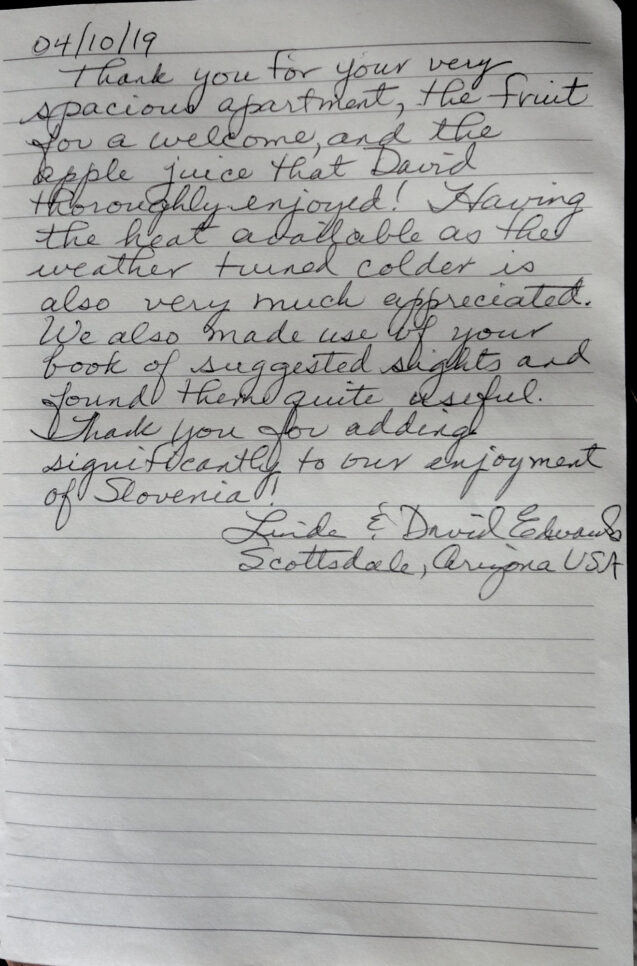 04/10/19
Thank you for your very
spacious apartment, the fruit
for a welcome, and the
apple juice that David
thoroughly enjoyed! Having
the heat available as the
weather turned colder is
also very much appreciated.
We also made use of your
book of suggested sights and
found them quite useful.
Thank you for adding
significantly to our enjoyment
of Slovenia!!
Linda & David Edwards
Scottsdale, Arizona USA